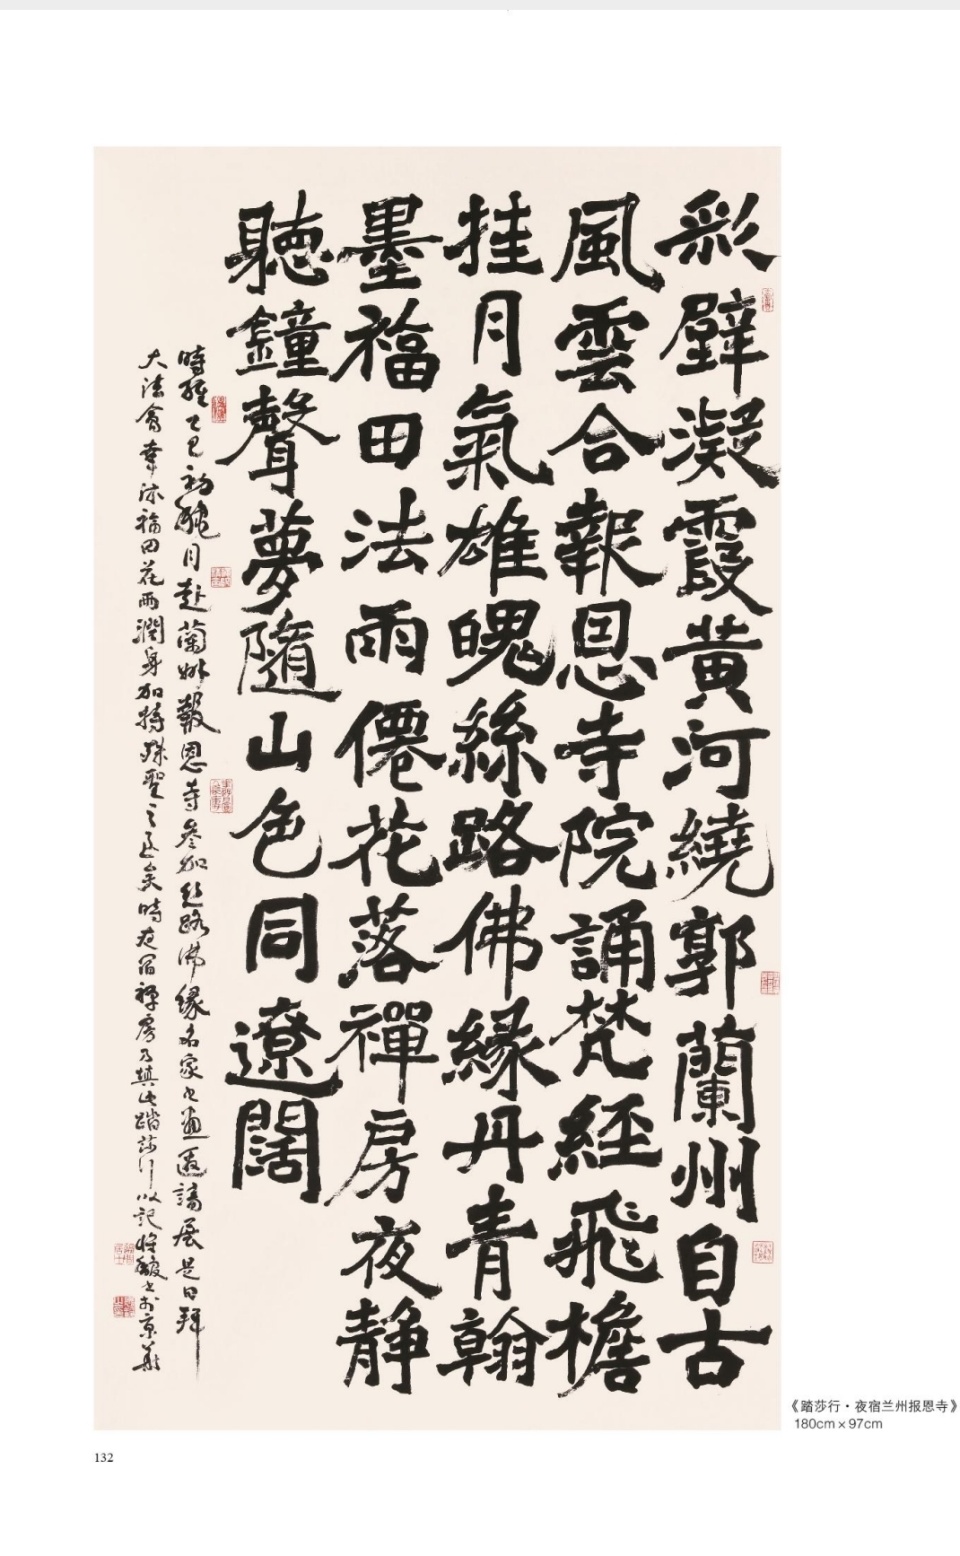 彩壁凝霞黄河繞郭蘭州自古
風雲合報恩寺院誦梵經飛檐
挂月氣雄魄絲路佛緣丹青翰
墨福田法雨僊花落禪房夜静
聽鐘聲夢隨山色同遼闊
時維乙巳初秋月赴蘭州報恩寺參加丝路佛缘名家書畫邀請展是日拜
大法會幸沐福田花雨潤身加持殊聖之至矣時夜宿禪房乃填此踏莎行以記將駿書於京華
《踏莎行·夜宿兰州报恩寺》
180cm×97cm
132